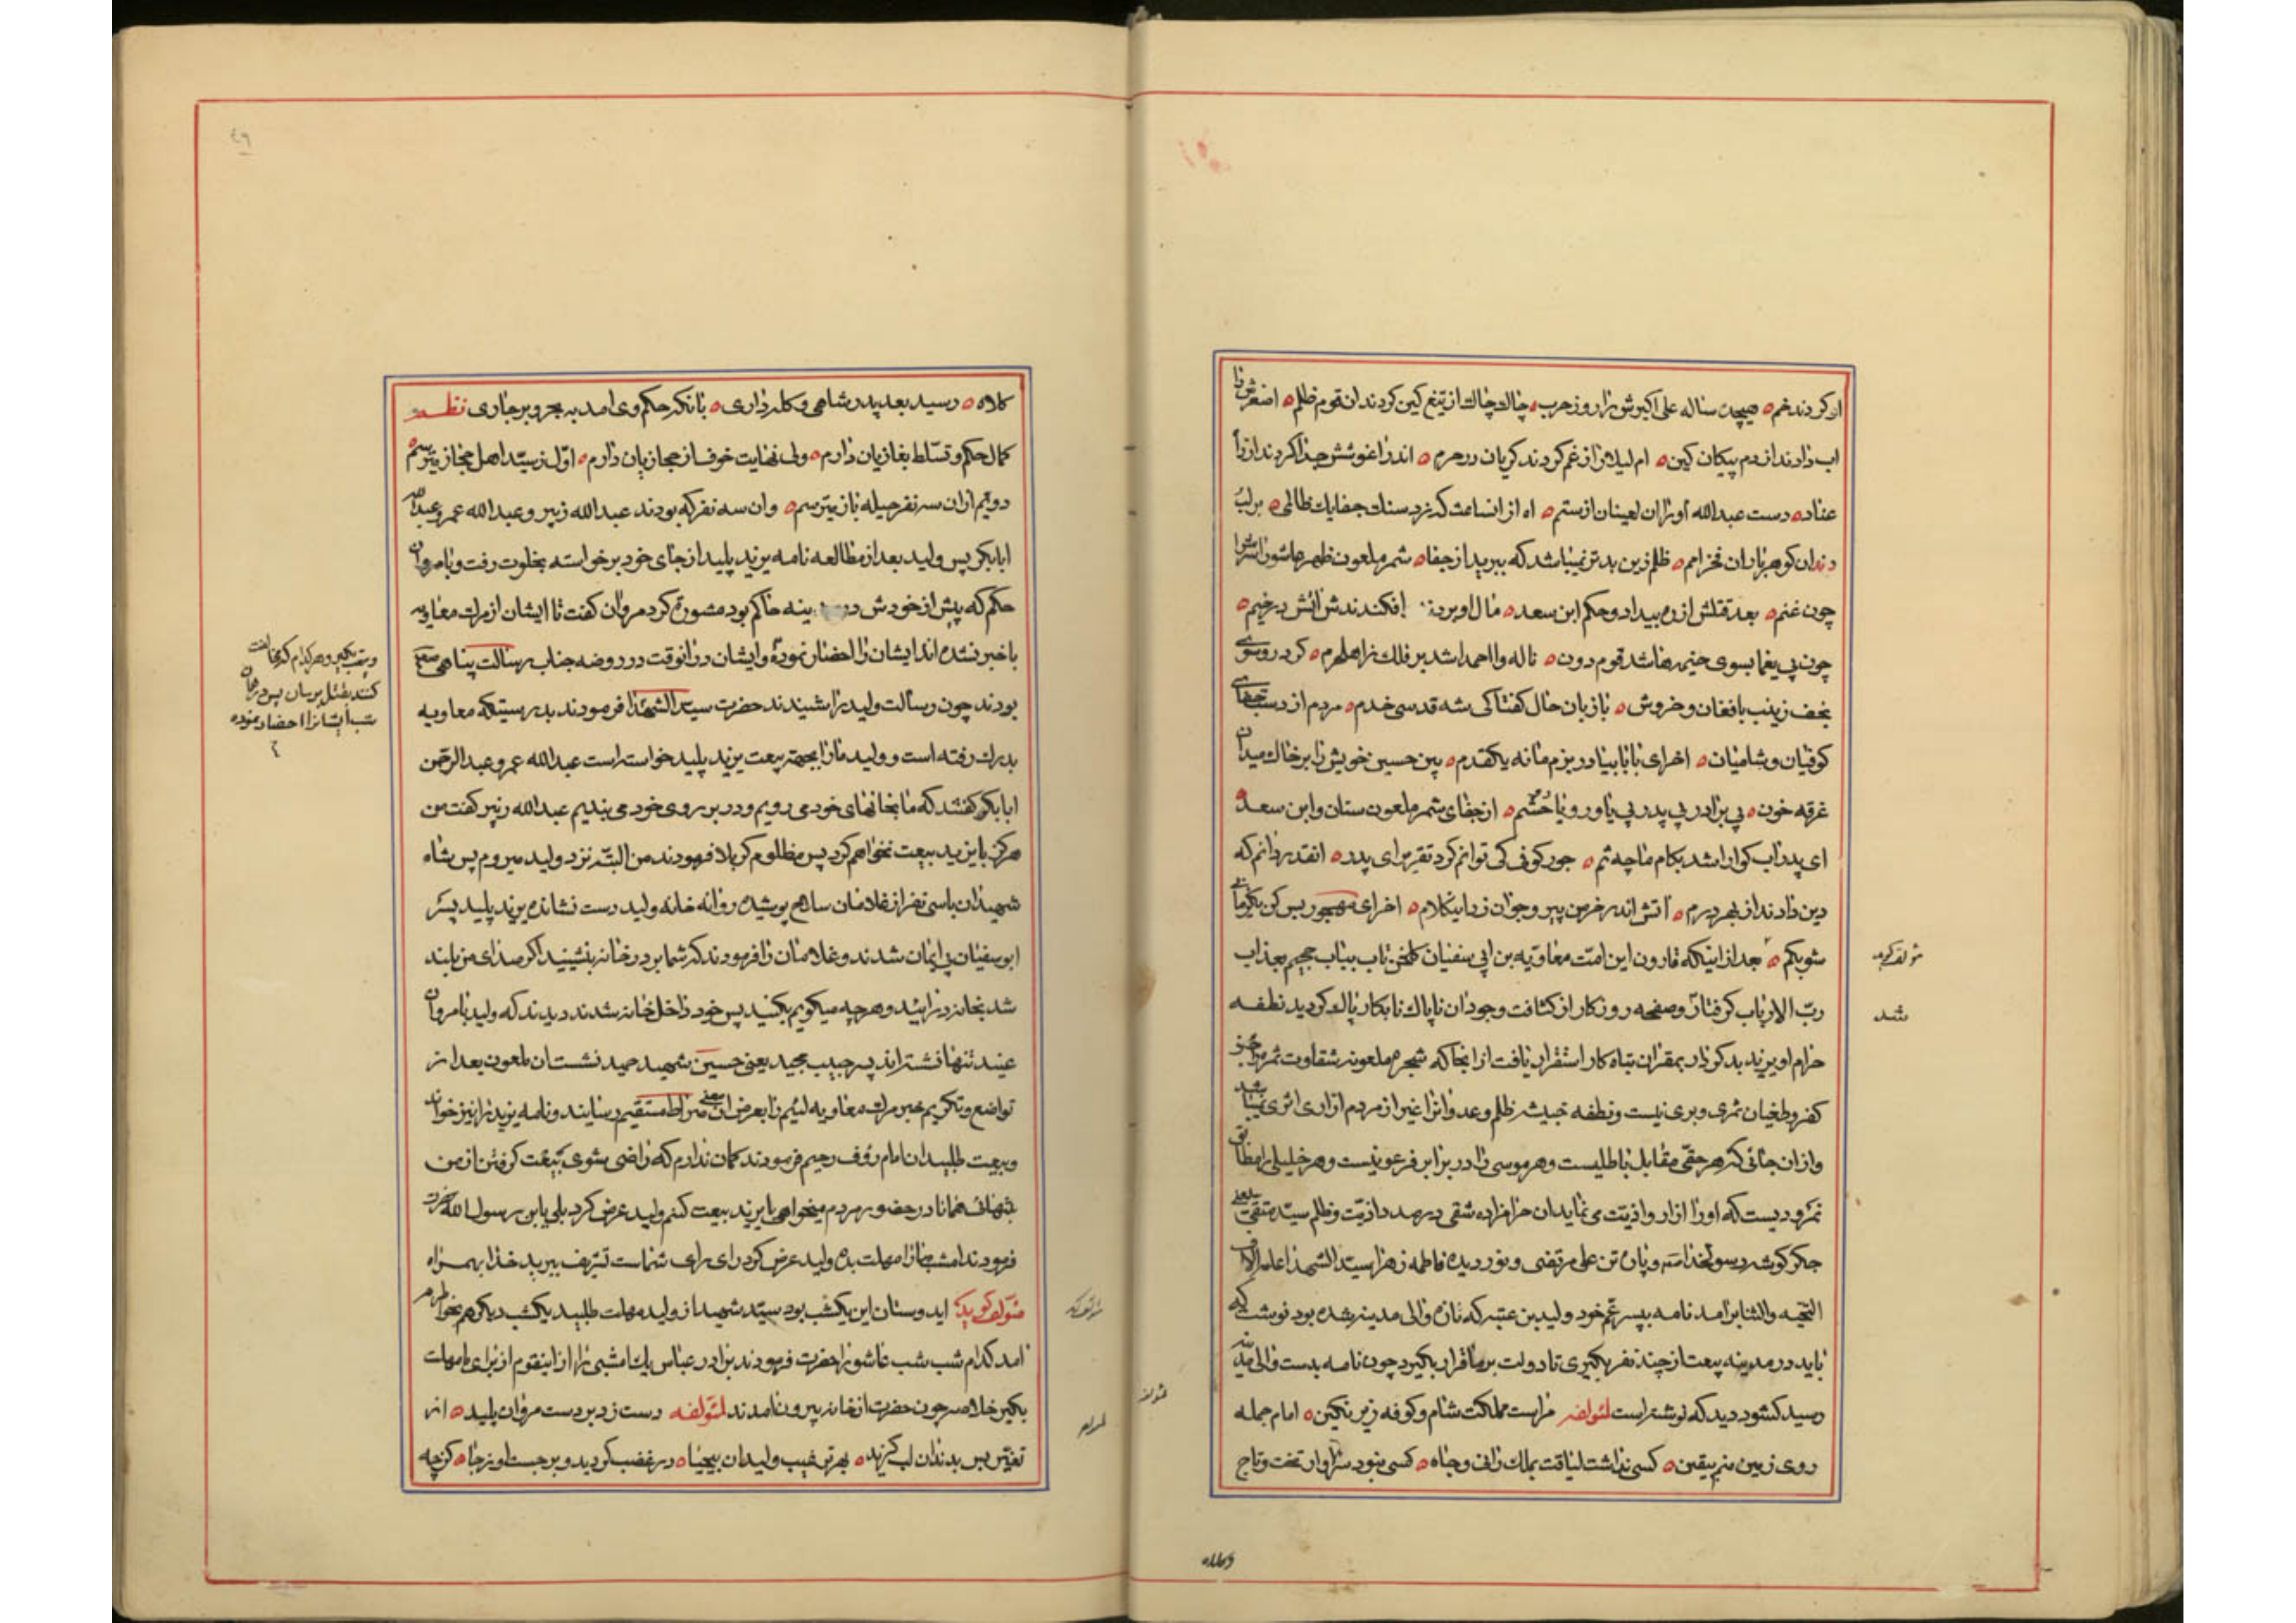 او کردند خم ه هیچده ساله علی اکبرش را روز حرب ه چاک چاک از تیغ کین کردند ان قوم ظلم ه اصغرش را
اب دادند از دم پیکان کین ه ام لیلا را از غم کردند کریان در حرم ه اندر اغوشش جدا کردند از راه
عناد ه دست عبدالله او را ان لعینان از ستم ه اه از انساعت که زد سنک جفا یک ظالمی ه بر لب
دندان کوهر باران فخر امم ه ظلم زین بدتر نمیباشد که ببرید از جفا ه شمر ملعون ظهر عاشورا سرش را
چون غنم ه بعد قتلش از ره بیداد و حکم ابن سعد ه مال او بردند افکندندش اتش در خیم ه
چون پی یغما بسوی خیمه ها شد قوم دون ه ناله وا احمدا شد بر فلک از اهل حرم ه کرد رو سوی
نجف زینب با فغان و خروش ه با زبان حال کفتا کی شه قدسی خدم ه مردم از دست جفای
کوفیان و شامیان ه اخر ای بابا بیا در بزم ما نه یکقدم ه بین حسین خویش را بر خاک میدان
غرقه خون ه بی برادر بی پدر بی یاور و با حشم ه از جفای شمر ملعون سنان و ابن سعد ه
ای پدر اب کوارا شد بکام ما چه سم ه جور کوفی کی توانم کرد تقریر ای پدر ه انقدر دانم که
دین دادند از بهر درم ه اتش اندر خرمن پیر و جوان زد اینکلام ه اخر ای مهجور بس کن یکزمانی
شو بکم ه بعد از اینکه قارون این امت معاویه بن ابی سفیان بیتاب جحیم بعذاب
ربّ الارباب کرفتار و صفحه روزکار از کثافت وجود ان ناپاک نابکار پاک کردید نطفه
حرام او یزید بدکردار بمقر ان تباه کار استقرار یافت از انجا که شجره ملعونه شقاوت ثمر را جز
کفر و طغیان ثمری و بری نیست و نطفه خبیث ظلم و عدوانرا غیر از مردم ازاری اثری نمیباشد
و از ان جائی که هر حقی مقابل باطلیست و هر موسی را در برابر فرعونیست و هر خلیلی را مطابق
نمرودیست که او را ازار و اذیت می نماید ان حرامزاده شقی در صدد اذیت و ظلم سید متقی یعنی
جکر کوشه رسولخدا ص و پاره تن علی مرتضی و نور دیده فاطمه زهرا سید الشهدا علیه الاف
التحیه والثنا برامد نامه بپسر عم خود ولید بن عتبه که تازه والی مدینه شده بود نوشت که
باید در مدینه بیعت از چند نفر بکیری تا دولت بر ما قرار بکیرد چون نامه بدست والی مدینه
رسید کشود دید که نوشته است لمؤلفه مراست مملکت شام و کوفه زیر نکین ه امام جمله
روی زمین منم بیقین ه کسی نداشت لیاقت بملک رانی و جاه ه کسی نبود سزاوار تخت و تاج
شد
و کلاه
٤٦
کلاه ه رسید بعد پدر شاهی و کله داری ه بانکه حکم وی امد به بحر و بر جاری نظم
کمال حکم و تسلط بغازیان دارم ه ولی نهایت خوف از حجازیان دارم ه اول ز سید اهل حجاز میترسم
دویم از ان سه نفر حیله باز میترسم ه و ان سه نفر که بودند عبدالله زبیر و عبدالله عمر و عبدالله
ابابکر پس ولید بعد از مطالعه نامه یزید پلید از جای خود برخواسته بخلوت رفت و با مروان
حکم که پیش از خودش در مدینه حاکم بود مشورة کرد مروان کفت تا ایشان از مرک معاویه
با خبر نشده اند ایشان را احضار نموده و ایشان در انوقت در روضه جناب رسالت پناهی ص
بودند چون رسالت ولید را شنیدند حضرت سید الشهدا فرمودند بدرستیکه معاویه
بدرک رفته است و ولید ما را بجهة بیعت یزید پلید خواسته است عبدالله عمر و عبدالرحمن
ابابکر کفتند که ما بخانهای خود می رویم و در بروی خود می بندیم عبدالله زبیر کفت من
هرکز با یزید بیعت نخواهم کرد پس مظلوم کربلا فرمودند من البته نزد ولید میروم پس شاه
شهیدان با سی نفر از غلامان سلاح پوشیده روانه خانه ولید دست نشانده یزید پلید پسر
ابوسفیان بی ایمان شدند و غلامان را فرمودند که شما بر در خانه بنشینید اکر صدای من بلند
شد بخانه در ائید و هر چه میکویم بکنید پس خود داخل خانه شدند دیدند که ولید با مروان
عنید تنها نشسته اند پسر حبیب مجید یعنی حسین شهید حمید نشست ان ملعون بعد از
تواضع و تکریم خبر مرک معاویه لئیم را بعرض ان معنی صراط مستقیم رسانید و نامه یزید را نیز خواند
و بیعت طلبید ان امام رؤف رحیم فرمودند کمان ندارم که راضی شوی ببیعت کرفتن از من
بتنهائی همانا در حضور مردم میخواهی با یزید بیعت کنم ولید عرض کرد بلی یابن رسول الله حضرت
فرمودند امشب ما را مهلت بده ولید عرض کرد رای رای شماست تشریف ببرید خدا بهمراه
مؤلف کوید ایدوستان این یکشب بود سید شهید از ولید مهلت طلبید یکشب دیکر هم بخواطرم
امد کدام شب شب عاشورا حضرت فرمودند برادر عباس یک امشبی را از اینقوم از برای ما مهلت
بکیر خلاصه چون حضرت از خانه بیرون امدند لمؤلفه دست زد بر دست مروان پلید ه از
تغیّر پس بدندان لب کزید ه بهر ترغیب ولید ان بیحیا ه در غضب کردید و برجست او ز جا ه کز چه
و بیعت بکیر و هر کدام که مخالفت
کنند بقتل برسان پس در همان
شب ایشانرا احضار نموده